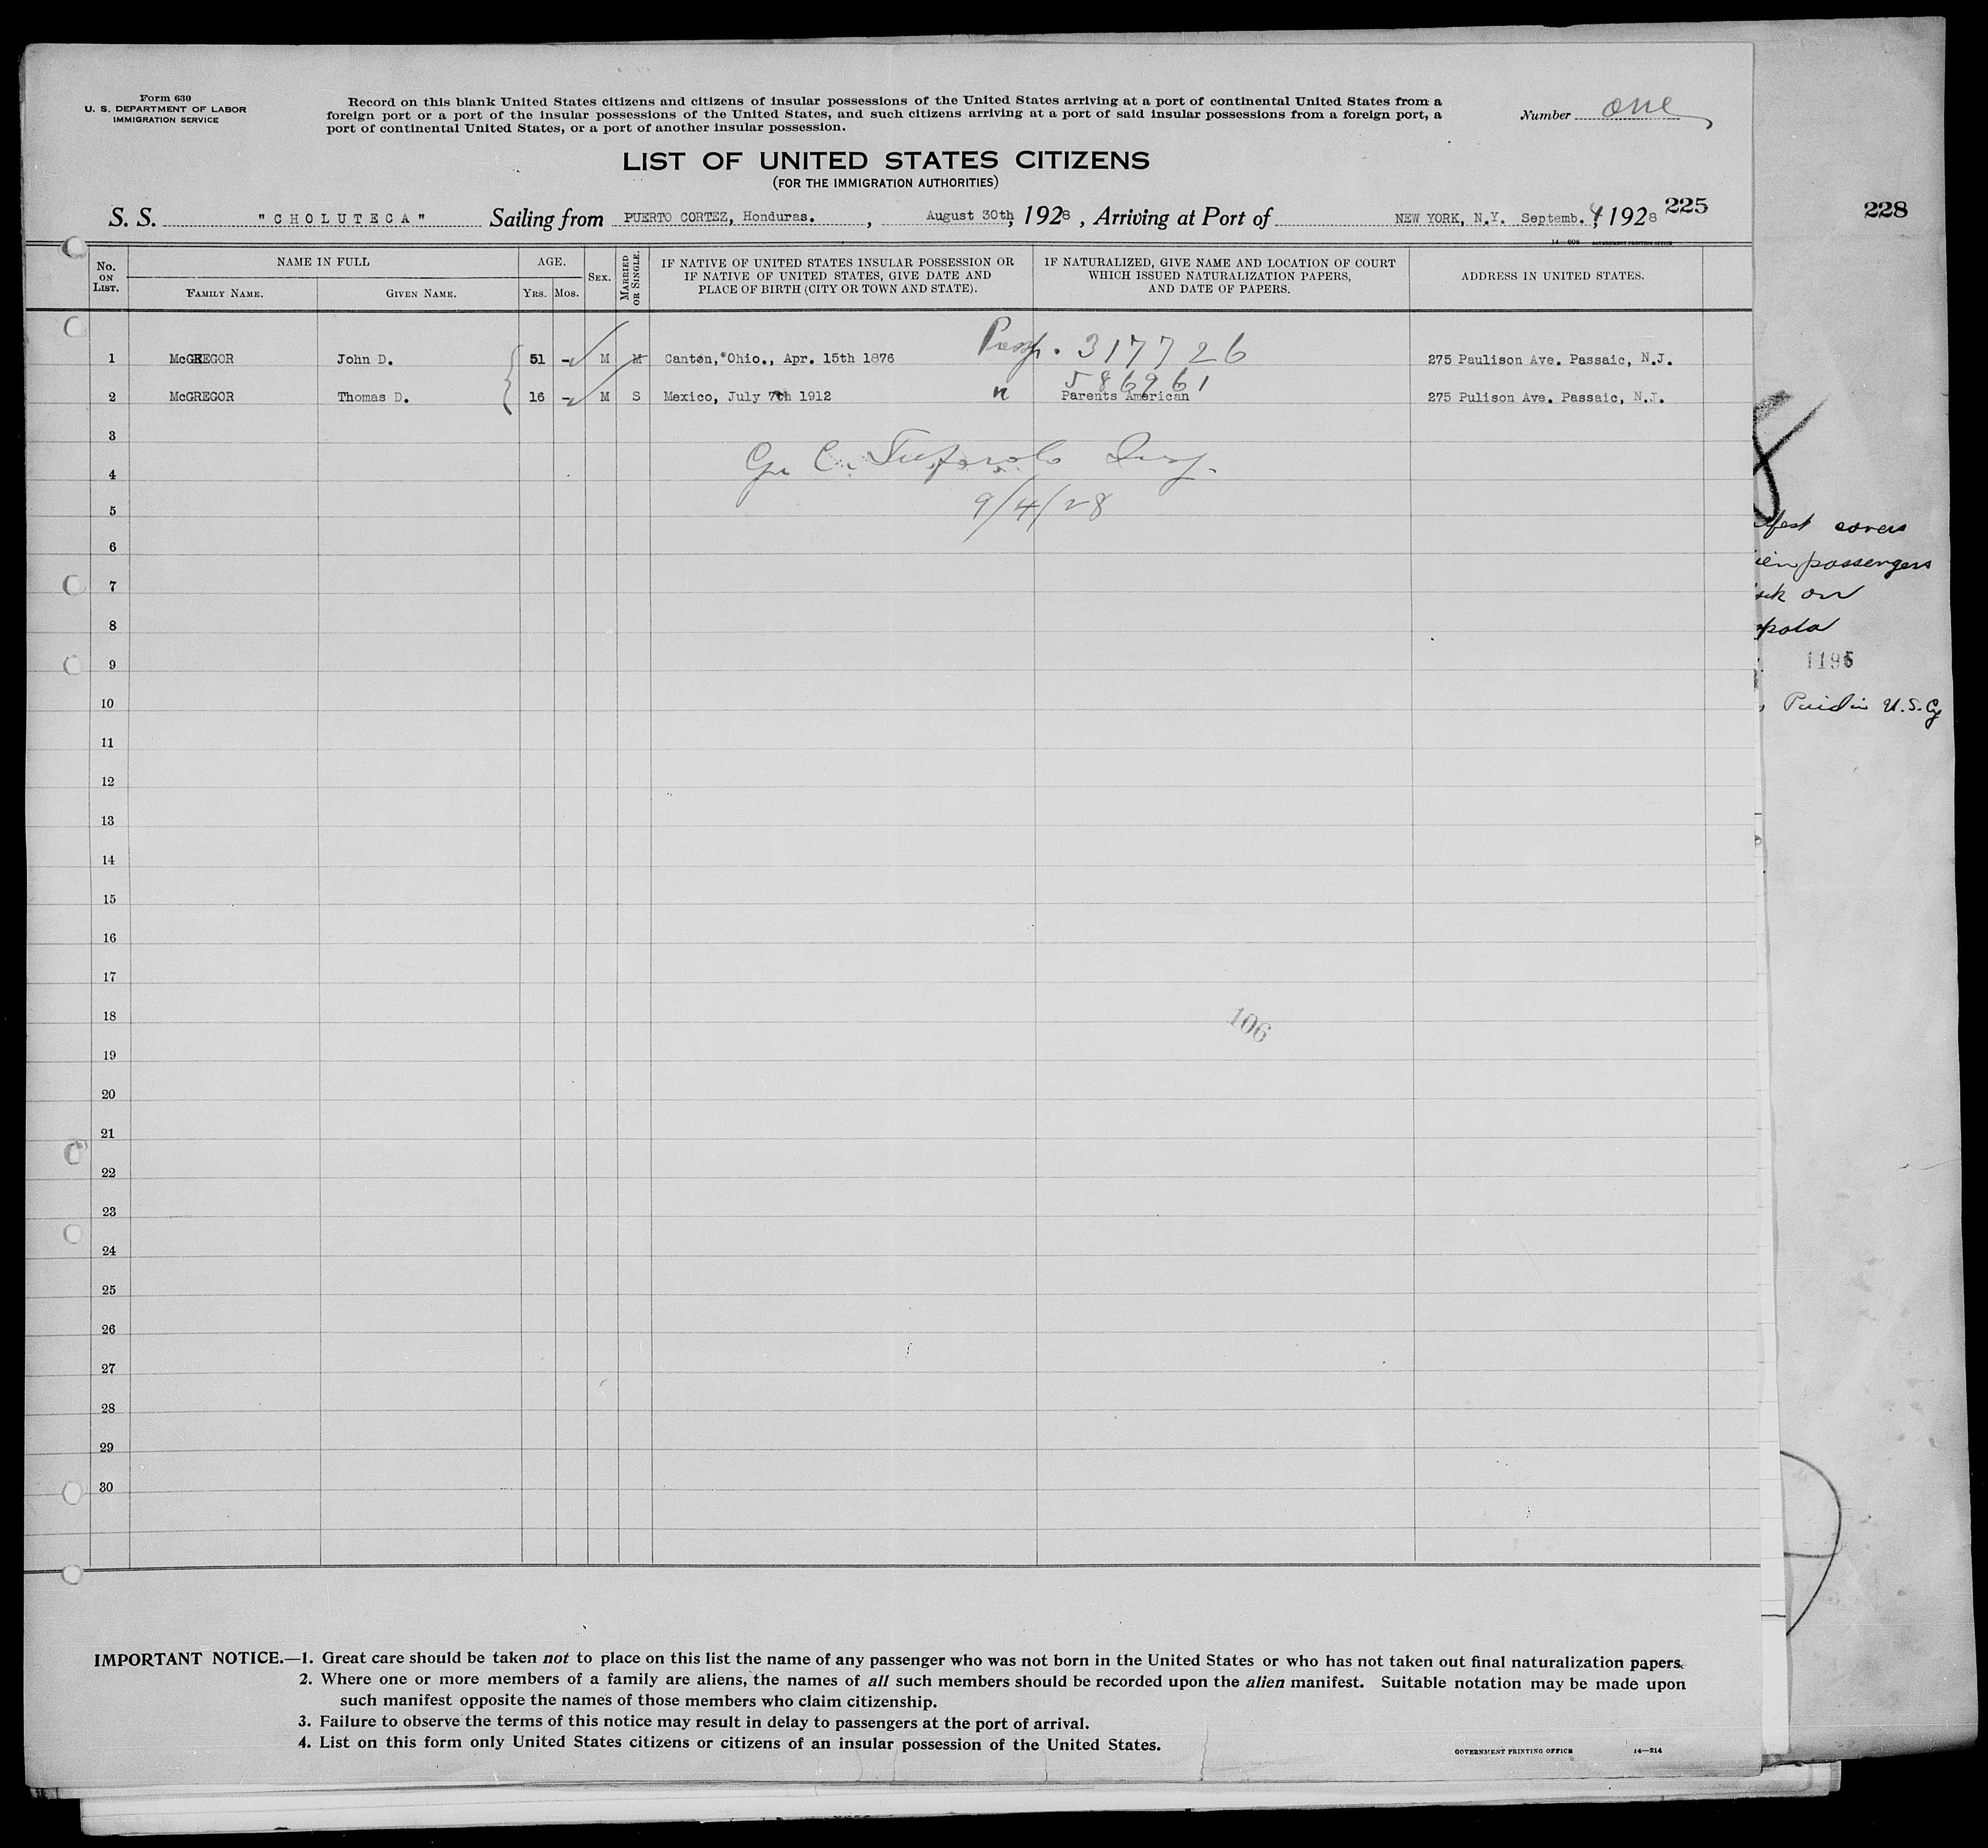 Form 630
U. S. DEPARTMENT OF LABOR
IMMIGRATION SERVICE
Record on this blank United States citizens and citizens of insular possessions of the United States arriving at a port of continental United States from a
foreign port or a port of the insular possessions of the United States, and such citizens arriving at a port of said insular possessions from a foreign port, a
port of continental United States, or a port of another insular possession.
Number one
LIST OF UNITED STATES CITIZENS
(FOR THE IMMIGRATION AUTHORITIES)
S. S. "CHOLUTECA" Sailing from PUERTO CORTEZ, Honduras. , August 30th, 1928 , Arriving at Port of NEW YORK, N.Y. Septemb. 4, 1928 225
228
No. ON LIST.
NAME IN FULL
FAMILY NAME.
GIVEN NAME.
AGE.
YRS. MOS.
SEX.
MARRIED OR SINGLE.
IF NATIVE OF UNITED STATES INSULAR POSSESSION OR
IF NATIVE OF UNITED STATES, GIVE DATE AND
PLACE OF BIRTH (CITY OR TOWN AND STATE).
IF NATURALIZED, GIVE NAME AND LOCATION OF COURT
WHICH ISSUED NATURALIZATION PAPERS,
AND DATE OF PAPERS.
ADDRESS IN UNITED STATES.
Passp. 317726
1 McGREGOR John D. 51 - M M Canton, Ohio., Apr. 15th 1876 275 Paulison Ave. Passaic, N.J.
586961
2 McGREGOR Thomas D. 16 - M S Mexico, July 7th 1912 " Parents American 275 Pulison Ave. Passaic, N.J.
3
4
Insp.
5
9/4/28
6
7
8
9
10
11
12
13
14
15
16
17
18
106
19
20
21
22
23
24
25
26
27
28
29
30
covers
passengers
on
1195
U.S. Cy
IMPORTANT NOTICE.—1. Great care should be taken not to place on this list the name of any passenger who was not born in the United States or who has not taken out final naturalization papers.
2. Where one or more members of a family are aliens, the names of all such members should be recorded upon the alien manifest. Suitable notation may be made upon
such manifest opposite the names of those members who claim citizenship.
3. Failure to observe the terms of this notice may result in delay to passengers at the port of arrival.
4. List on this form only United States citizens or citizens of an insular possession of the United States.
GOVERNMENT PRINTING OFFICE 14—214